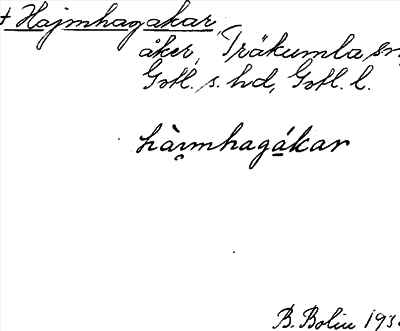 + Hajmhagakar
åker, Träkumla sn,
Gotl. s. hd, Gotl. l.
hàı̯mhagá̱kar
B. Bolin